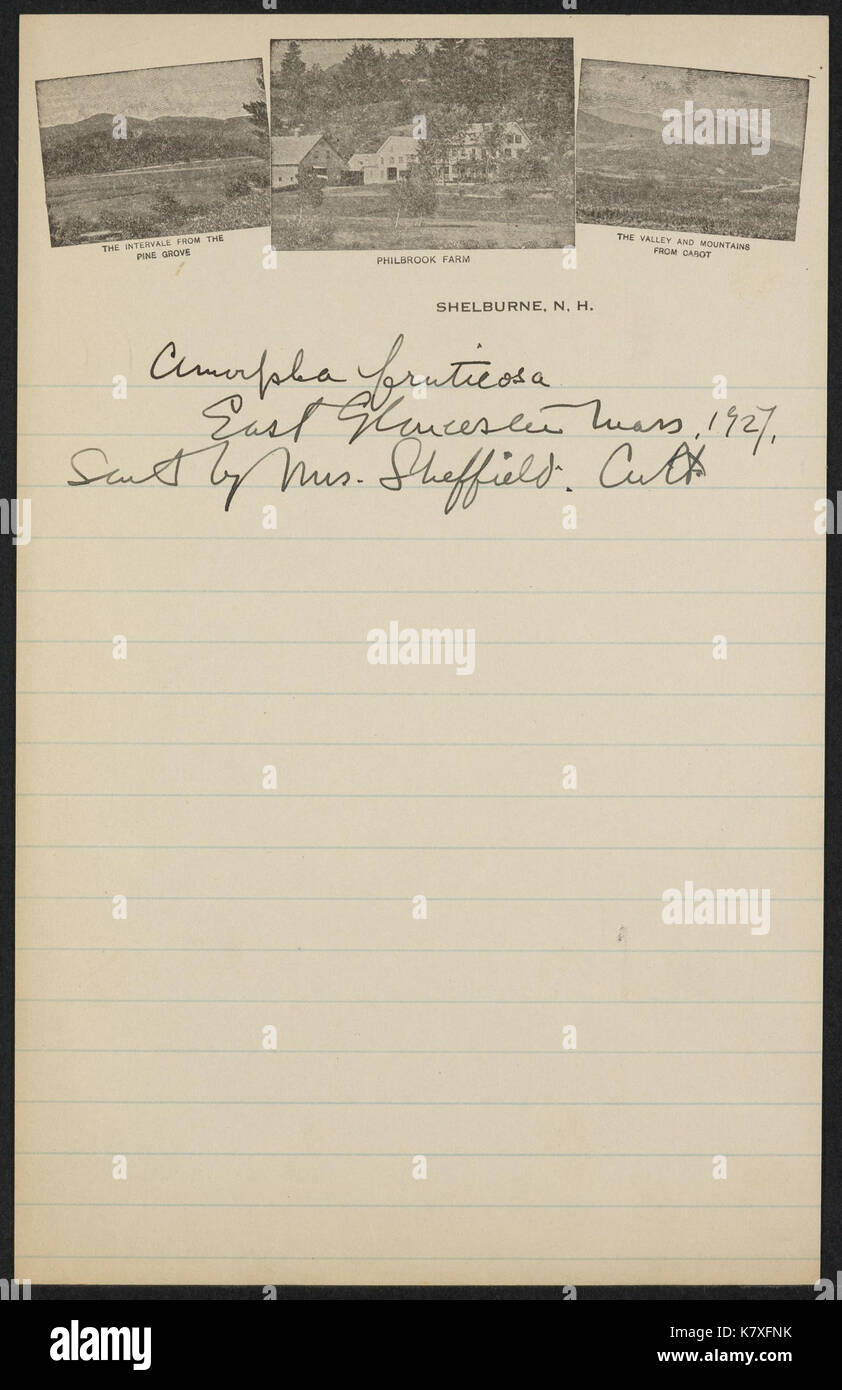 THE INTERVALE FROM THE
PINE GROVE
PHILBROOK FARM
THE VALLEY AND MOUNTAINS
FROM CABOT
SHELBURNE, N. H.
Amorpha fruticosa
East Gloucester Mass, 1927.
Sent by Mrs. Sheffield. Cult
alamy stock photo
K7XFNK
www.alamy.com